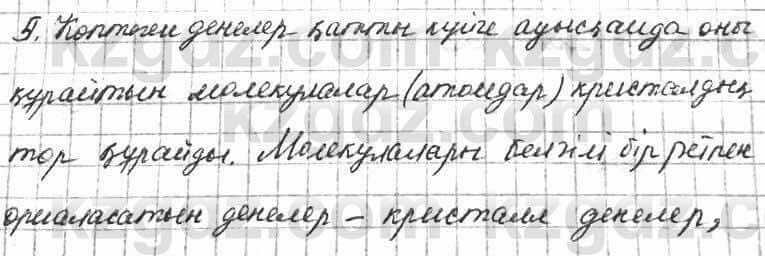 5. Көптеген денелер қатты күйге ауысқанда оны
құрайтын молекулалар (атомдар) кристалдық
тор құрайды. Молекулалары белгілі бір ретпен
орналасатын денелер – кристалл денелер,